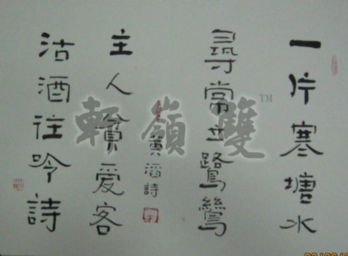 一片寒塘水
尋常立鷺鷥
主人貧愛客
沽酒往吟詩
黃滔詩
雙嶺軒™